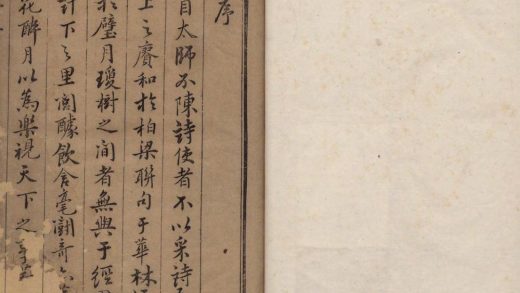 序
自太師不陳詩使者不以采詩
上之賡和於柏梁聯句于華林
於璧月瓊樹之間者無與于經
對下之里閭醵飲含毫鬬奇
花醉月以為樂視天下之